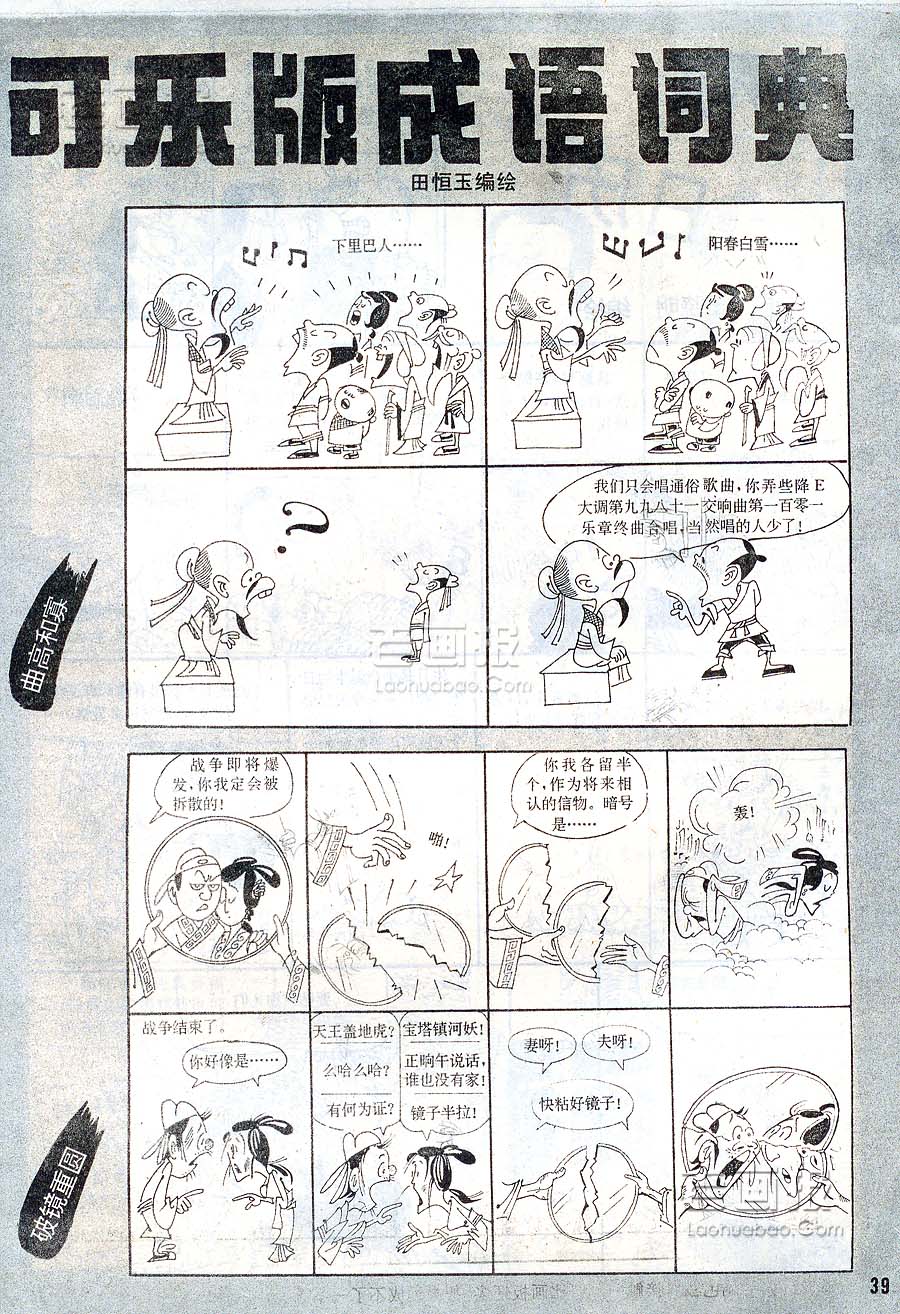 可乐版成语词典
田恒玉编绘
曲高和寡
下里巴人……
阳春白雪……
?
我们只会唱通俗歌曲，你弄些降E
大调第九九八十一交响曲第一百零一
乐章终曲合唱，当然唱的人少了！
老画报
Laohuabao.Com
破镜重圆
战争即将爆
发，你我定会被
拆散的！
你我各留半
个，作为将来相
认的信物。暗号
是……
轰！
战争结束了。
你好像是……
天王盖地虎？
宝塔镇河妖！
么哈么哈？
正晌午说话，
谁也没有家！
有何为证？
镜子半拉！
妻呀！
夫呀！
快粘好镜子！
老画报
Laohuabao.Com
39